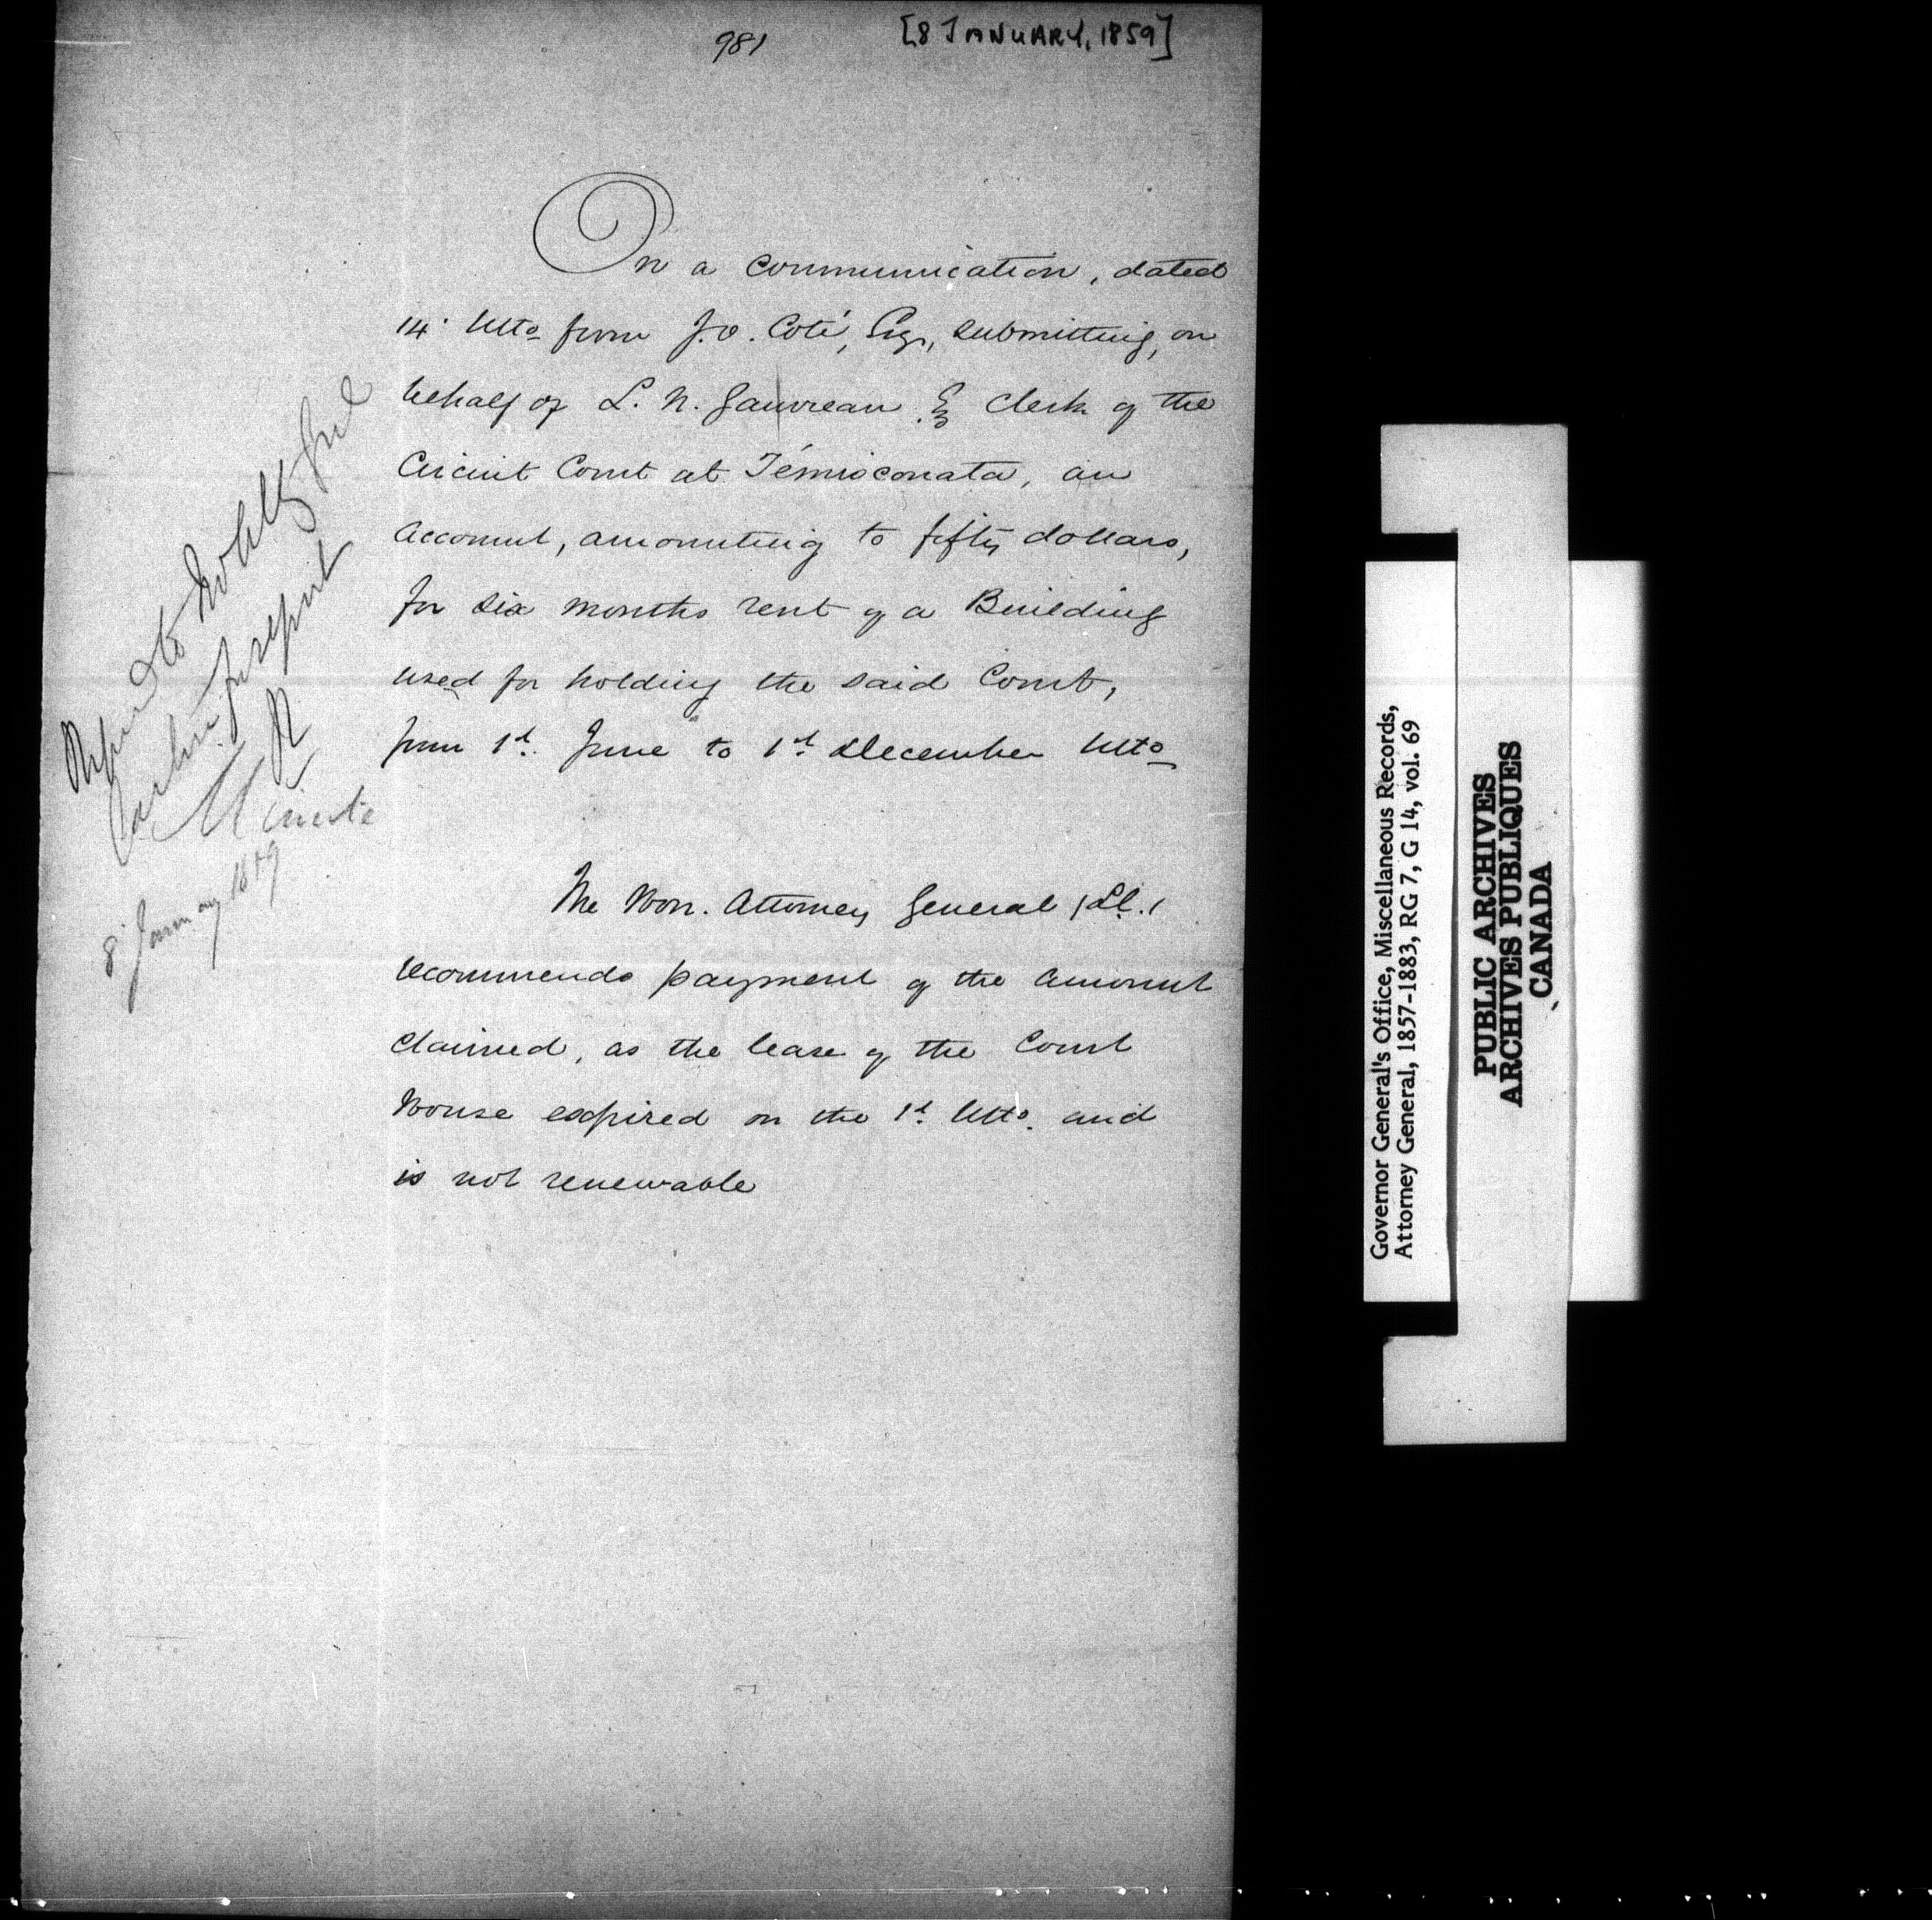 981
[8 JANUARY, 1859]
On a communication, dated
14' Ulto from J. O. Coté, Esq., submitting, on
behalf of L. N. Gauvreau Esq Clerk of the
Circuit Court at Témisconata, an
Account, amounting to fifty dollars,
for six months rent of a Building
used for holding the said Court,
from 1st. June to 1st December Ulto
The Hon. Attorney General (L.C.)
recommends payment of the Amount
claimed, as the lease of the Court
House expired on the 1st Ulto. and
is not renewable
to Atty Genl
for report
Minute
8' January 1859
Governor General's Office, Miscellaneous Records,
Attorney General, 1857-1883, RG 7, G 14, vol. 69
PUBLIC ARCHIVES
ARCHIVES PUBLIQUES
CANADA